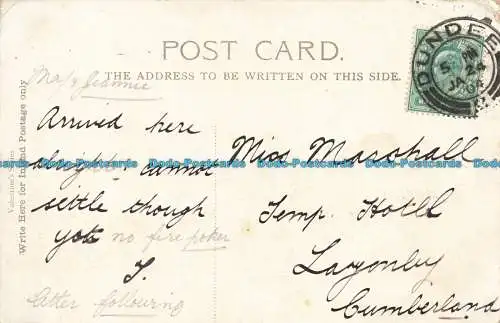 POST CARD.
THE ADDRESS TO BE WRITTEN ON THIS SIDE.
Valentine's Series
Write Here for Inland Postage only
DUNDEE
JA
04
Arrived here
alright. cannot
settle though
yet no fire poker
J.
Letter following
Miss Marshall
Temp. Hotel
Lazonby
Cumberland
Dodo-Postcards Dodo-Postcards Dodo-Postcards Dodo-Postcards